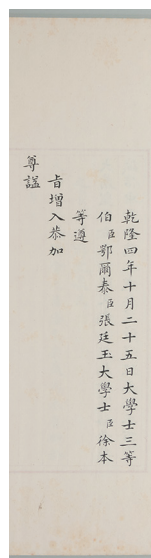 乾隆四年十月二十五日大學士三等
伯臣鄂爾泰臣張廷玉大學士臣徐本
等遵
旨增入恭加
尊諡